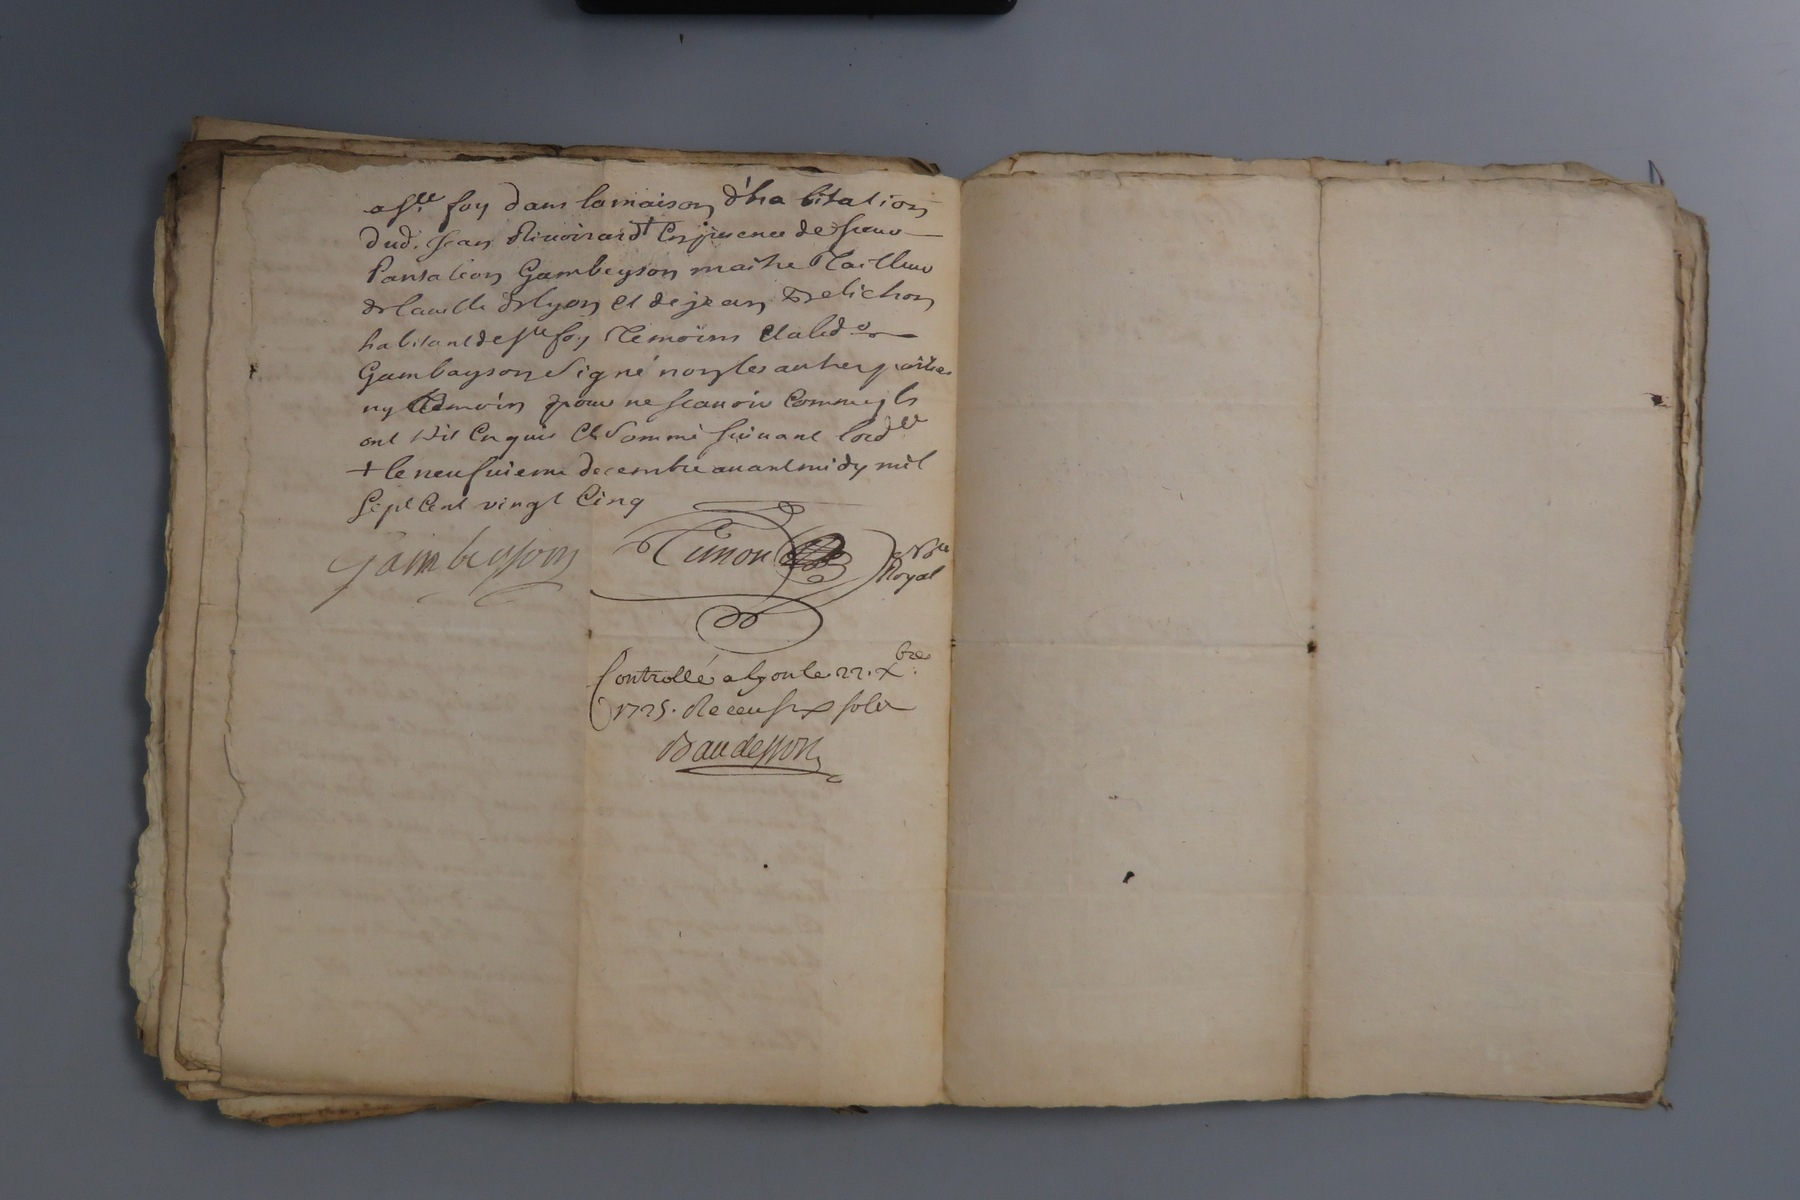 a Ste foy dans la maison d'habitation
dud. Jean en presence de sieur
Pantaleon Gambeyson maitre Tailleur
de la ville de lyon et de jean
habitant de Ste foy Temoins et a led.
Gambayson Signé non les autres parties
ny Temoin pour ne scauoir comme ils
ont dit enquis et sommé suivant lord
+ le neufuieme decembre auant midy mil
sept cent vingt cinq
Gambeyson
Royal
Controllé a lyon le 22. xbre
1725. Receu six sols
Baudesson